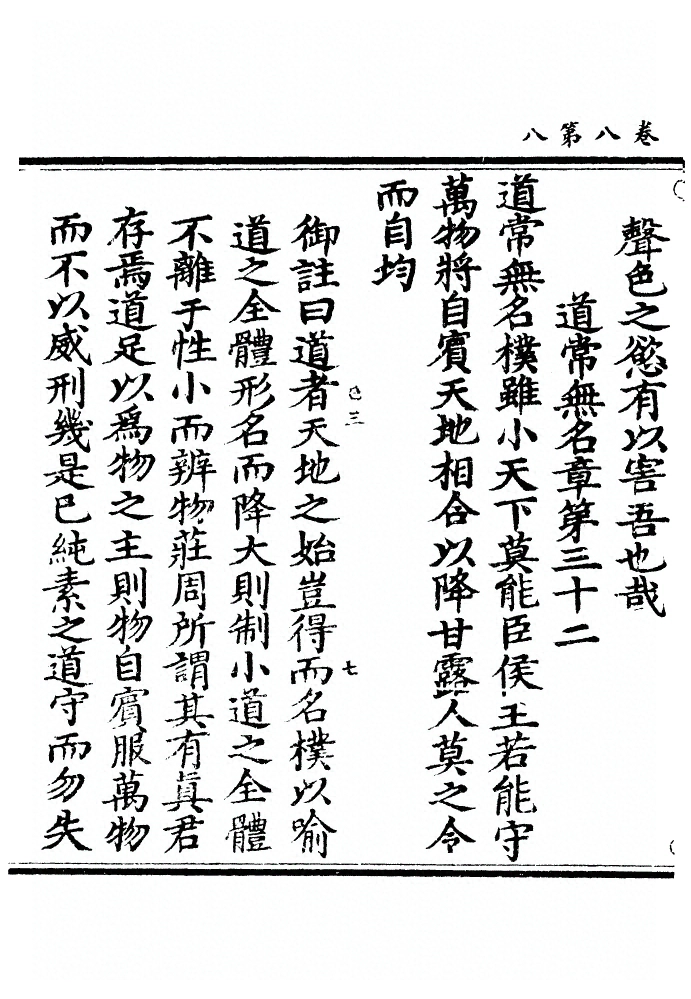 卷八第八
聲色之慾有以害吾也哉
道常無名章第三十二
道常無名樸雖小天下莫能臣侯王若能守
萬物將自賓天地相合以降甘露人莫之令
而自均
御註曰道者天地之始豈得而名樸以喻
三
七
道之全體形名而降大則制小道之全體
不離于性小而辨物莊周所謂其有眞君
存焉道足以爲物之主則物自賓服萬物
而不以威刑幾是已純素之道守而勿失